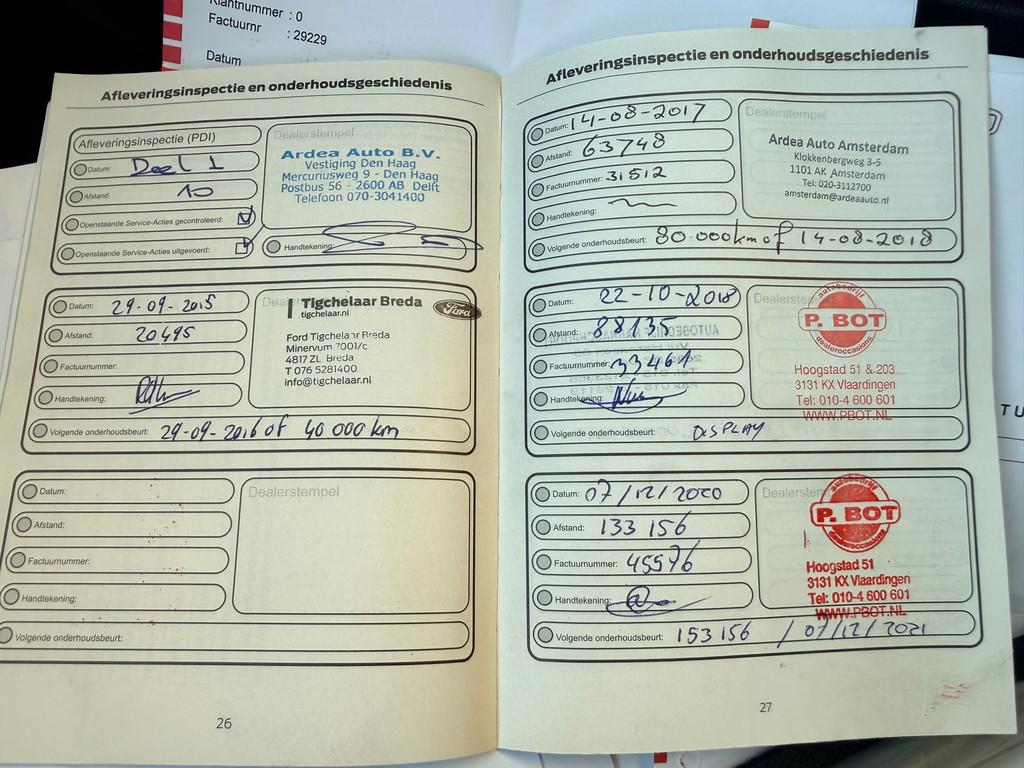 Klantnummer : 0
Factuurnr : 29229
Datum
Afleveringsinspectie en onderhoudsgeschiedenis
Afleveringsinspectie (PDI)
Datum: Deel 1
Afstand: 10
Openstaande Service-Acties gecontroleerd:
Openstaande Service-Acties uitgevoerd:
Dealerstempel
Ardea Auto B.V.
Vestiging Den Haag
Mercuriusweg 9 - Den Haag
Postbus 56 - 2600 AB Delft
Telefoon 070-3041400
Handtekening:
Datum: 29-09-2015
Afstand: 20495
Factuurnummer:
Handtekening:
Tigchelaar Breda
tigchelaar.nl
Ford
Ford Tigchelaar Breda
Minervum 7001/c
4817 ZL Breda
T 076 5281400
info@tigchelaar.nl
Volgende onderhoudsbeurt: 29-09-2016 of 40 000 km
Datum:
Afstand:
Factuurnummer:
Handtekening:
Dealerstempel
Volgende onderhoudsbeurt:
26
Afleveringsinspectie en onderhoudsgeschiedenis
Datum: 14-08-2017
Afstand: 63748
Factuurnummer: 31512
Handtekening:
Dealerstempel
Ardea Auto Amsterdam
Klokkenbergweg 3-5
1101 AK Amsterdam
Tel: 020-3112700
amsterdam@ardeaauto.nl
Volgende onderhoudsbeurt: 80.000km of 14-08-2018
Datum: 22-10-2018
Afstand: 88135
Factuurnummer: 33461
Handtekening:
Dealerstempel
autobedrijf
P. BOT
dealeroccasions
Hoogstad 51 & 203
3131 KX Vlaardingen
Tel: 010-4 600 601
WWW.PBOT.NL
Volgende onderhoudsbeurt: DISPLAY
Datum: 07/12/2020
Afstand: 133 156
Factuurnummer: 45576
Handtekening:
Dealerstempel
autobedrijf
P. BOT
dealeroccasions
Hoogstad 51
3131 KX Vlaardingen
Tel: 010-4 600 601
WWW.PBOT.NL
Volgende onderhoudsbeurt: 153 156 / 07/12/2021
27